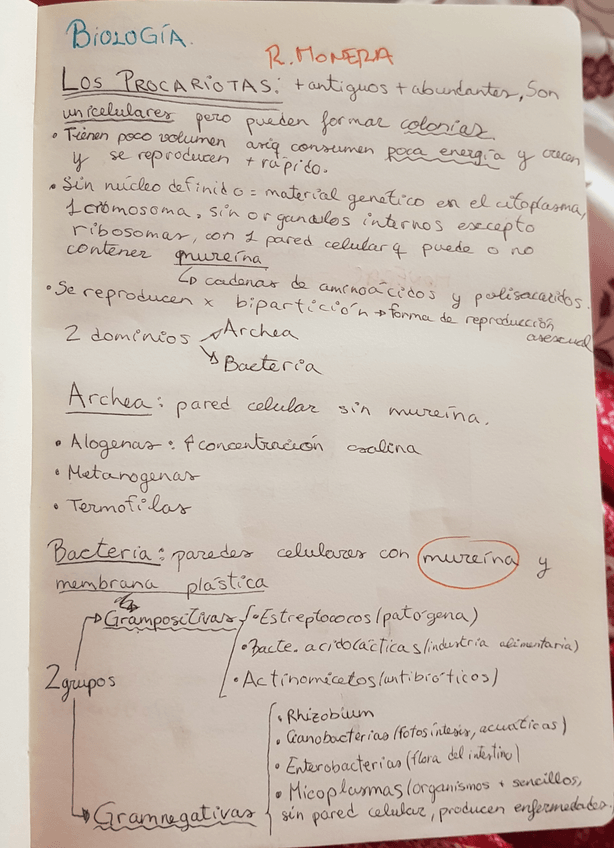 BIOLOGÍA.
R. MONERA
LOS PROCARIOTAS: + antiguos + abundantes, Son
unicelulares pero pueden formar colonias.
• Tienen poco volumen asiq consumen poca energía y crecen
y se reproducen + rápido.
• Sin núcleo definido = material genetico en el citoplasma,
1 cromosoma, sin organulos internos excepto
ribosomas, con 1 pared celular q puede o no
contener mureína
↳ cadenas de aminoácidos y polisacaridos.
• Se reproducen x bipartición → forma de reproducción
asexual
2 dominios → Archea
↘ Bacteria
Archea: pared celular sin mureína.
• Alogenas: ↑ concentración salina
• Metanogenas
• Termofilas
Bacteria: paredes celulares con mureína y
membrana plástica
2 grupos
→ Grampositivas
• Estreptococos (patógena)
• Bacte. acidolácticas (industria alimentaria)
• Actinomicetos (antibióticos)
→ Gramnegativas
• Rhizobium
• Cianobacterias (fotosíntesis, acuáticas)
• Enterobacterias (flora del intestino)
• Micoplasmas (organismos + sencillos,
sin pared celular, producen enfermedades.